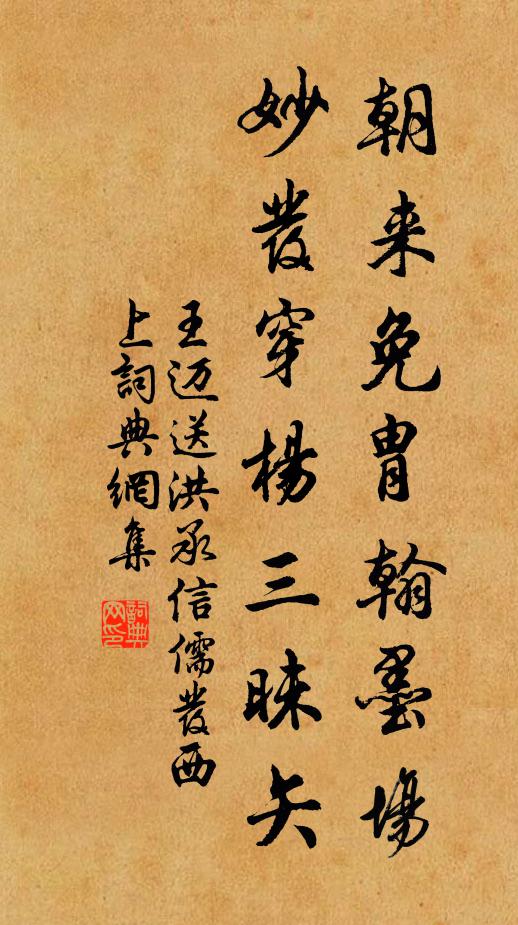 朝来免胄翰墨場
妙發穿楊三昧矢
王迈送洪承信儒發西
上詞典網集
詞典网印